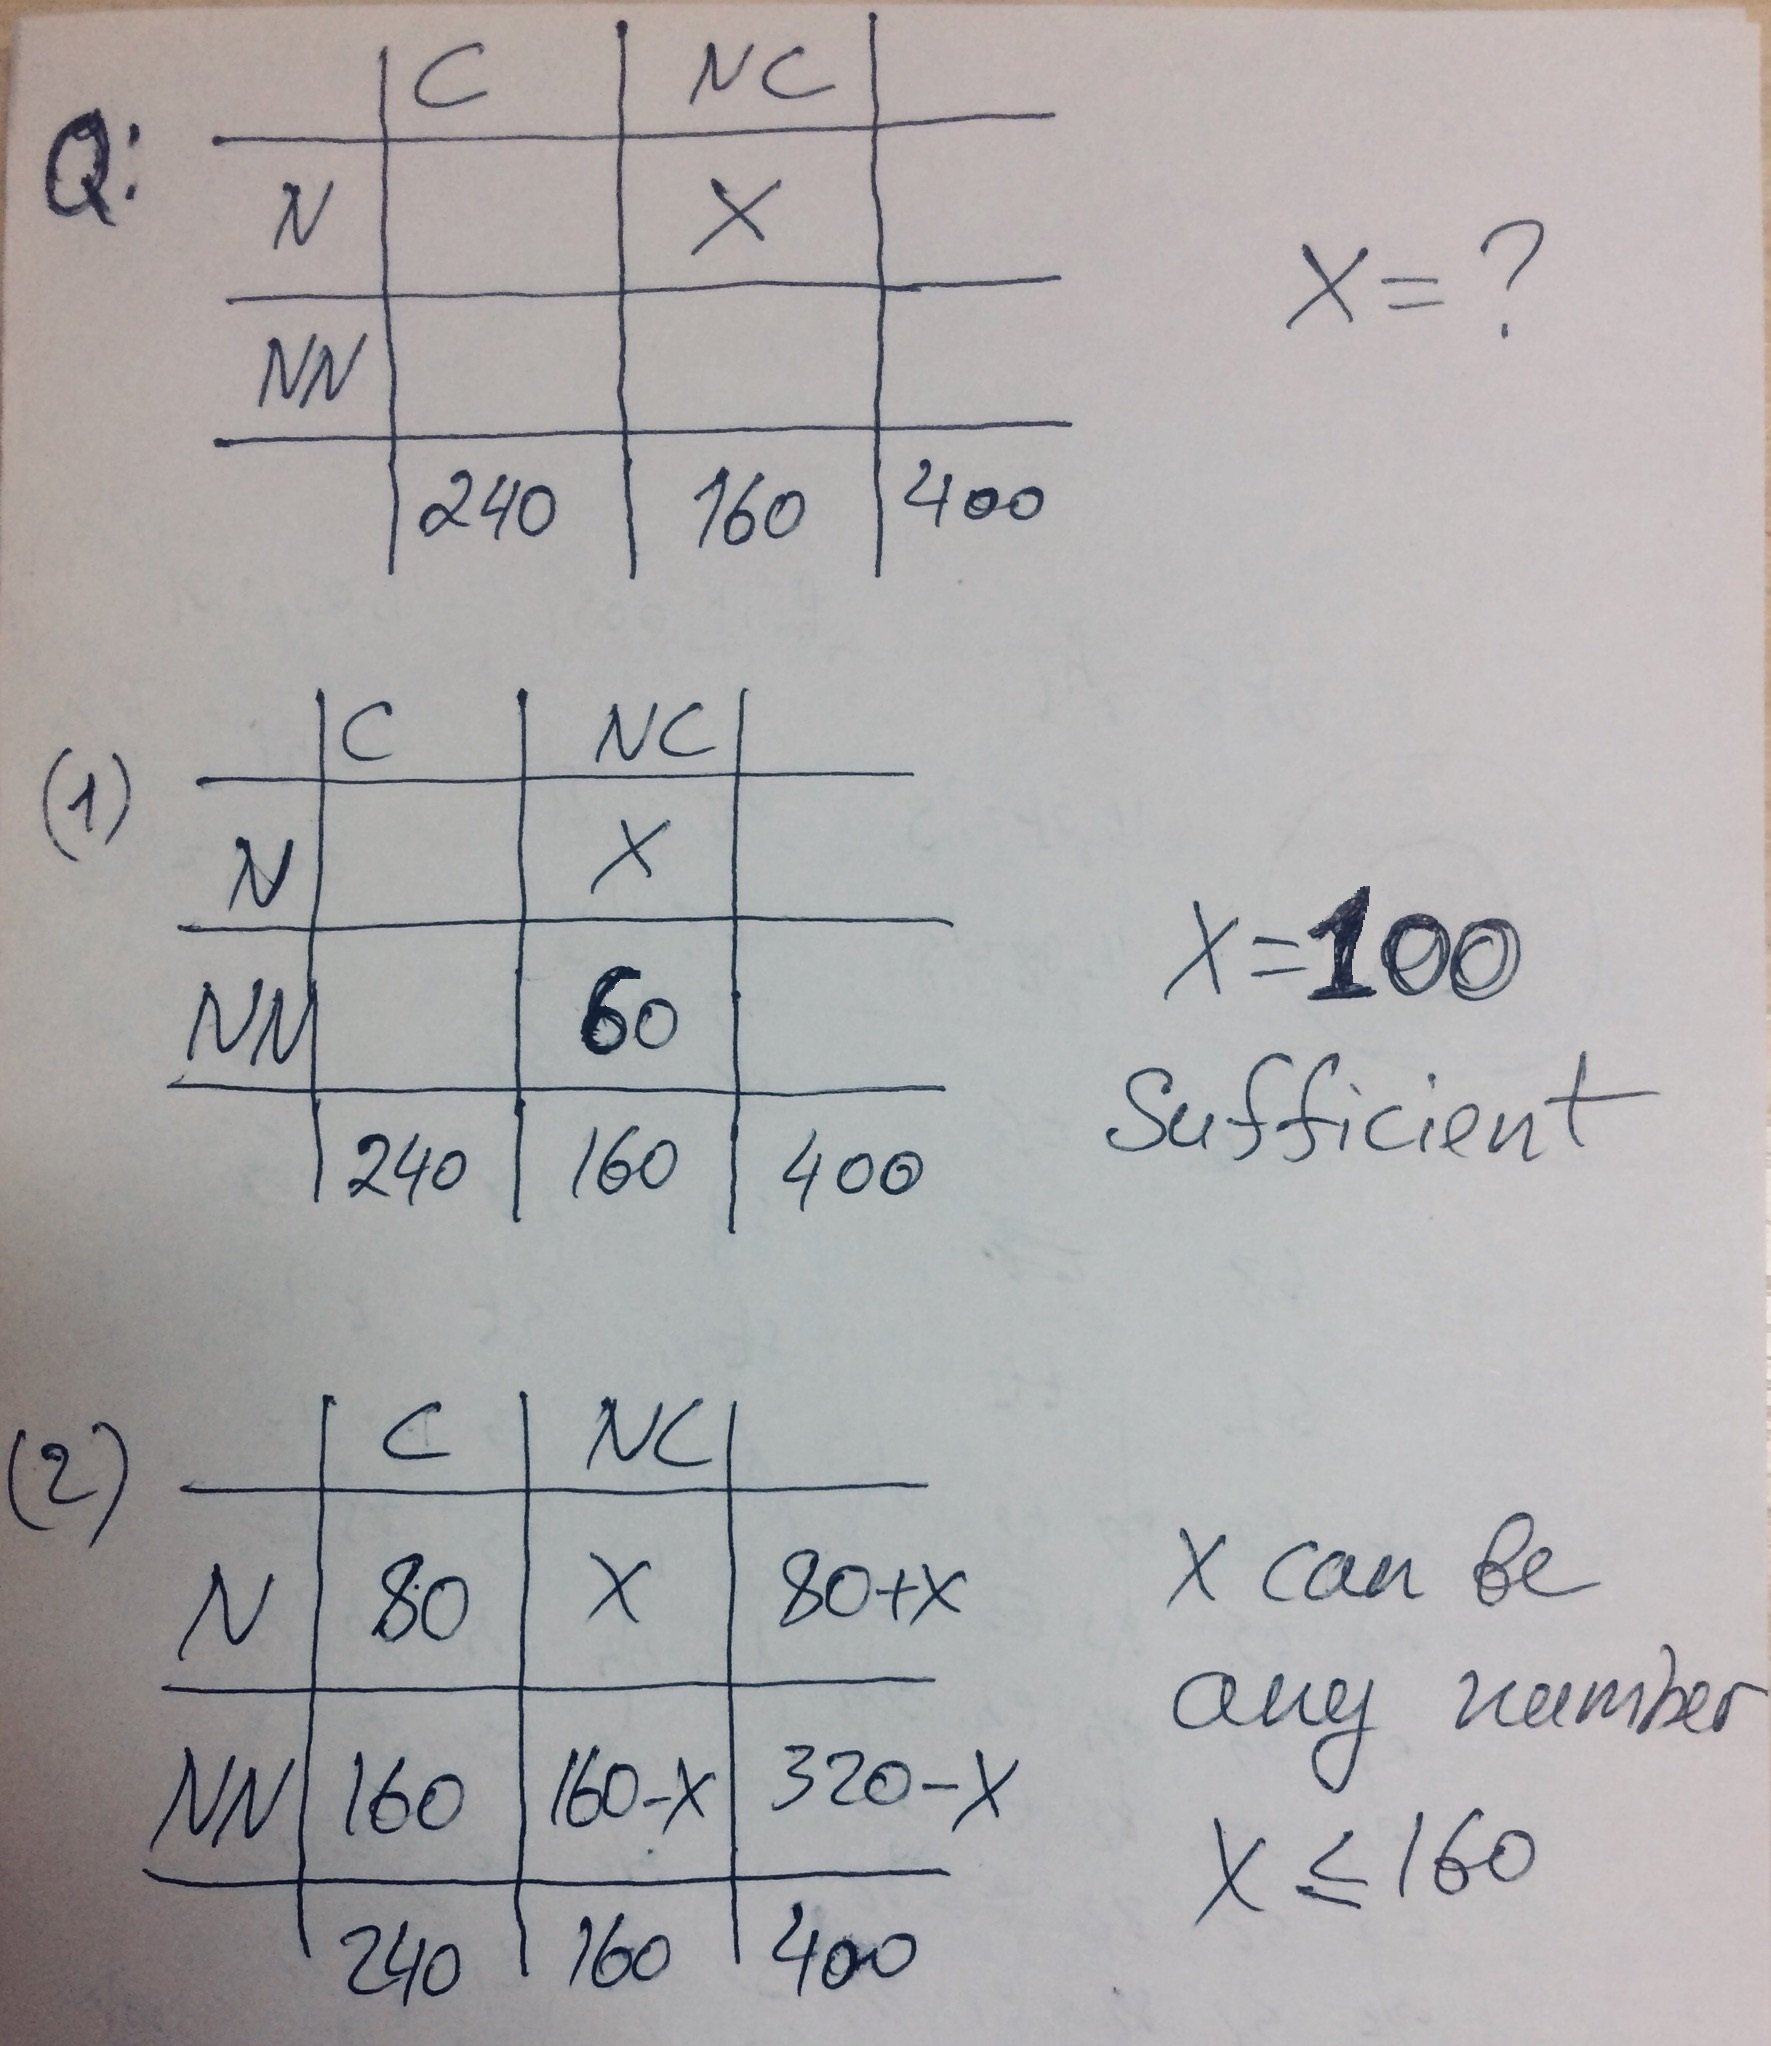 Q:
C NC
N X
NN
240 160 400
X = ?
(1)
C NC
N X
NN 60
240 160 400
X = 100
Sufficient
(2)
C NC
N 80 X 80+X
NN 160 160-X 320-X
240 160 400
X can be
any number
X ≤ 160